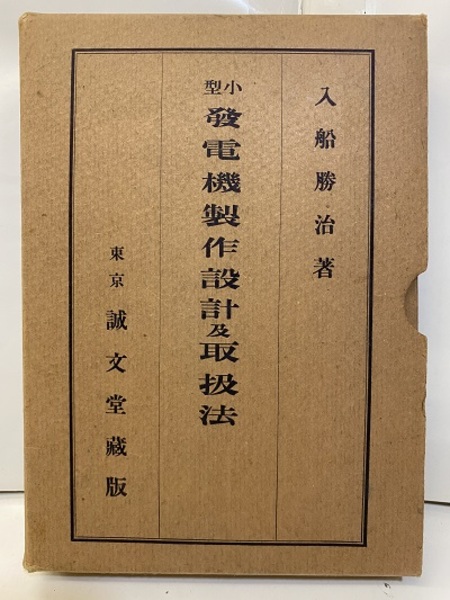 入船勝治著
小型
發電機製作設計及取扱法
東京 誠文堂藏版